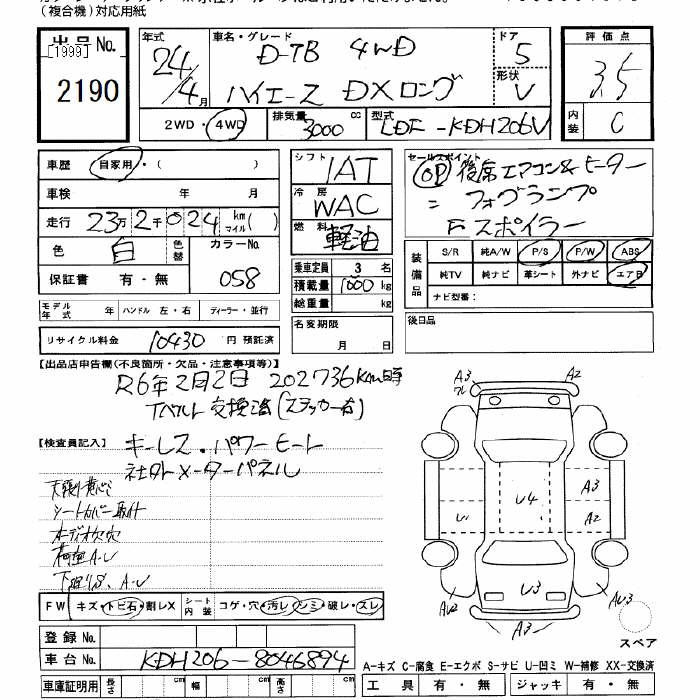 (複合機)対応用紙
出品No.
[1999]
2190
年式
24/4月
車名・グレード
D-TB 4WD
ハイエース DXロング
ドア
5
形状
V
評価点
3.5
内装
C
2WD・4WD
排気量
3000 cc
型式
LDF-KDH206V
車歴 自家用・( )
車検 年 月
走行 23万2千024 km マイル( )
色 白 色替 カラーNo. 058
保証書 有・無
モデル年式 年 ハンドル 左・右 ディーラー・並行
リサイクル料金 10430 円 預託済
シフト
IAT
冷房
WAC
燃料
軽油
乗車定員 3 名
積載量 1000 kg
総重量 kg
名変期限
月 日
セールスポイント
OP 後席エアコン&ヒーター
= フォグランプ
Fスポイラー
装備品
S/R 純A/W P/S P/W ABS
純TV 純ナビ 革シート 外ナビ エアB
ナビ型番:
後日品
【出品店申告欄(不良箇所・欠品・注意事項等)】
R6年2月2日 202736Km時
Tベルト交換済(ステッカー有)
【検査員記入】
キーレス・パワーヒート
社外メーターパネル
シートカバー取付
オーディオ欠穴
荷室A-U
下廻りS、A-U
FW キズ・トビ石・割レX シート内装 コゲ・穴・汚レ・シミ・破レ・スレ
登録No.
車台No. KDH206-8046894
車庫証明用 長さ cm 幅 cm 高さ cm
A3
A2
U4
A3
A2
U1
U3
AU2
A3
AU3
スペア
A-キズ C-腐食 E-エクボ S-サビ U-凹ミ W-補修 XX-交換済
工具 有・無 ジャッキ 有・無